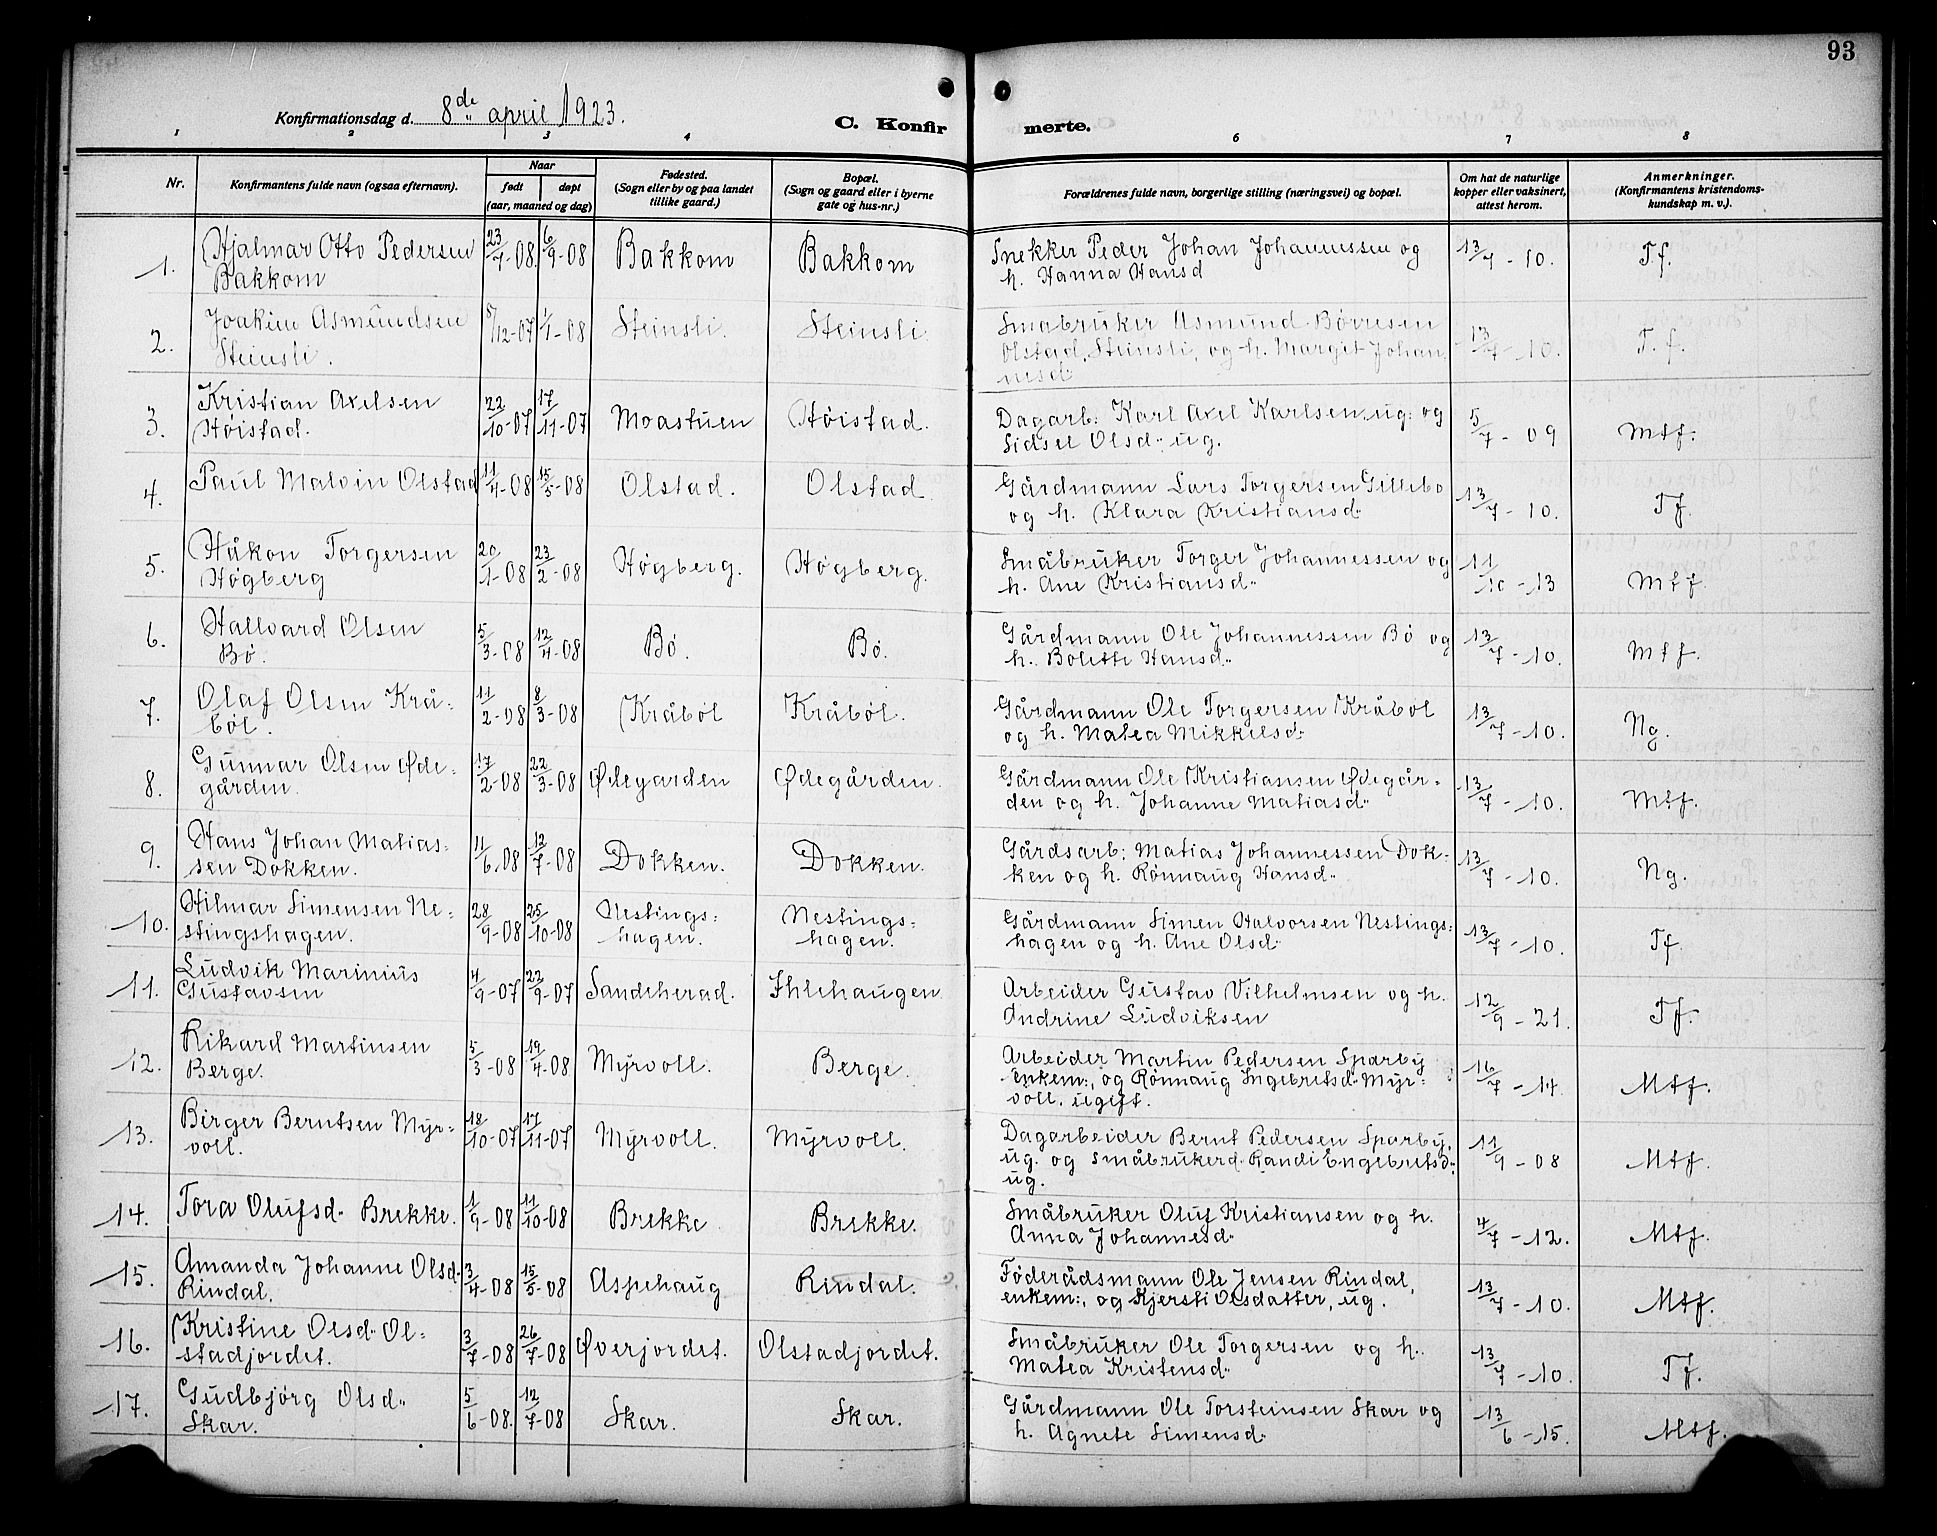 93
Konfirmationsdag d. 8de april 1923.
C. Konfirmerte.
1 2 3 4 6 7 8
Nr.
Konfirmantens fulde navn (ogsaa efternavn).
Naar
født døpt
(aar, maaned og dag)
Fødested.
(Sogn eller by og paa landet
tillike gaard.)
Bopæl.
(Sogn og gaard eller i byerne
gate og hus-nr.)
Forældrenes fulde navn, borgerlige stilling (næringsvei) og bopæl.
Om hat de naturlige
kopper eller vaksinert,
attest herom.
Anmerkninger.
(Konfirmantens kristendoms-
kundskap m. v.).
1. Hjalmar Otto Pedersen 23/7-08. 6/9-08 Bakkom Bakkom Snekker Peder Johan Johannessen og 13/7-10. Tf.
Bakkom h. Hanna Hansd
2. Joakim Asmundsen /12-07 1/1-08 Steinsli. Steinsli Småbruker Asmund Børresen 13/7-10. T.f.
Steinsli. Olstad, Steinsli, og h. Margit Johan
nesd
3. Kristian Axelsen 22/10-07 17/11-07 Moastuen Høistad. Dagarb: Karl Axel Karlsen, ug: og 5/7-09 Mtf.
Høistad. Sidsel Olsd: ug.
4. Paul Malvin Olstad 11/4-08 15/5-08 Olstad. Olstad. Gårdmann Lars Torgersen Gillebo 13/7-10. Tf.
og h. Klara Kristiansd
5. Håkon Torgersen 20/1-08 23/2-08 Høgberg. Høgberg. Småbruker Torger Johannessen og 11/10-13 Mtf.
Høgberg h. Ane Kristiansd
6. Hallvard Olsen 5/3-08 12/4-08 Bø. Bø. Gårdmann Ole Johannessen Bø og 13/7-10. Mtf.
Bø. h. Bolette Hansd
7. Olaf Olsen Krå- 11/2-08 8/3-08 Kråbøl Kråbøl. Gårdmann Ole Torgersen Kråbøl 13/7-10. Ng.
bøl. og h. Matea Mikkelsd
8. Gunnar Olsen Øde- 17/2-08 22/3-08 Ødegarden Ødegården. Gårdmann Ole Kristiansen Ødegår- 13/7-10. Mtf.
gården. den og h. Johanne Matiasd
9. Hans Johan Matias- 11/6.08 12/7-08 Dokken. Dokken. Gårdsarb: Matias Johannessen Dok- 13/7-10. Ng.
sen Dokken. ken og h. Rønnaug Hansd
10. Hilmar Simensen Ne- 28/9-08 25/10-08 Nestings- Nestings- Gårdmann Simen Halvorsen Nestings- 13/7-10. Tf.
stingshagen. hagen. hagen. hagen og h. Ane Olsd
11. Ludvik Marinius 4/9-07 22/9-07 Sandeherad. Ihlehaugen Arbeider Gustav Vilhelmsen og h. 12/9-21. Tf.
Gustavsen Andrine Ludviksen
12. Rikard Martinsen 5/3-08 19/4-08 Myrvoll. Berge. Arbeider Martin Pedersen Sparby 16/7-14. Mtf.
Berge. enkem:, og Rønnaug Ingebretsd. Myr-
voll, ugift.
13. Birger Berntsen Myr- 18/10-07 17/11-07 Myrvoll. Myrvoll. Dagarbeider Bernt Pedersen Sparby, 11/9-08 Mtf.
voll. ug. og Småbrukerd. Randi Engebretsd
ug.
14. Tora Olufsd. Brekke. 1/9-08 11/10-08 Brekke Brekke. Småbruker Oluf Kristiansen og h. 4/7-12. Mtf.
Anna Johannesd
15. Amanda Johanne Olsd. 3/4-08 15/5-08 Aspehaug Rindal. Føderådsmann Ole Jensen Rindal, 13/7-10. Mtf.
Rindal. enkem:, og Kjersti Olsdatter, ug.
16. Kristine Olsd. Ol- 3/7-08 26/7-08 Øverjordet. Olstadjordet. Småbruker Ole Torgersen og h. 13/7-10. Tf.
stadjordet. Matea Kristensd
17. Gudbjørg Olsd. 5/6-08. 12/7-08 Skar. Skar. Gårdmann Ole Torsteinsen Skar og 13/6-15. Mtf.
Skar. h. Agnete Simensd